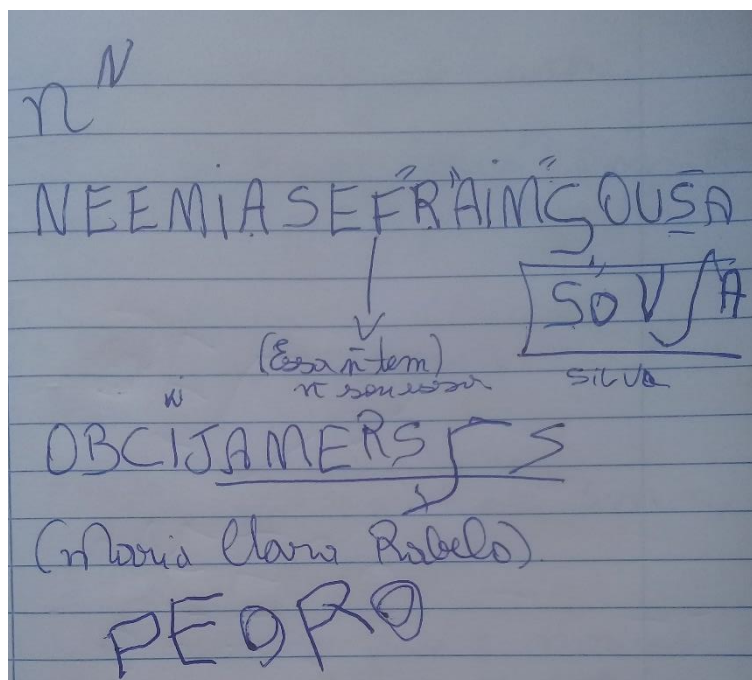 n N
NEEMIASEFRAIMSOUSA
SOUSA
(Essa ñ tem)
SILVA
N
OBCIJAMERS S
(Maria Clara Rabelo)
PEDRO